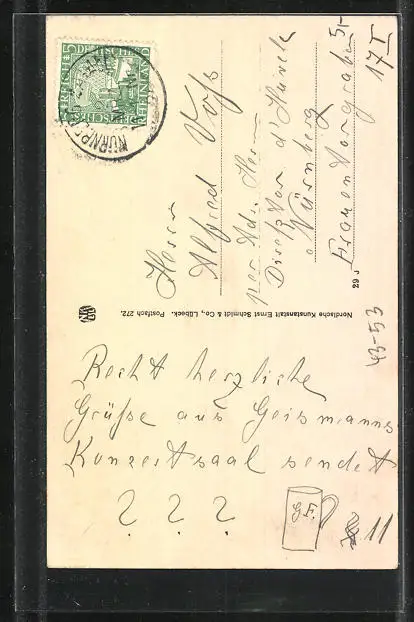 Recht herzliche
Grüße aus Geismanns
Konzertsaal sendet
? ? ?
G F.
11
Herrn
Alfred Voß
per Ad. Herrn
Direktor d'Hünek
Nürnberg
Frauentorgraben
5,-
17 I
43-53
29 J
Nordische Kunstanstalt Ernst Schmidt & Co., Lübeck. Postfach 272.
DEUTSCHES REICH
5
RHEINLAND
NÜRNBERG